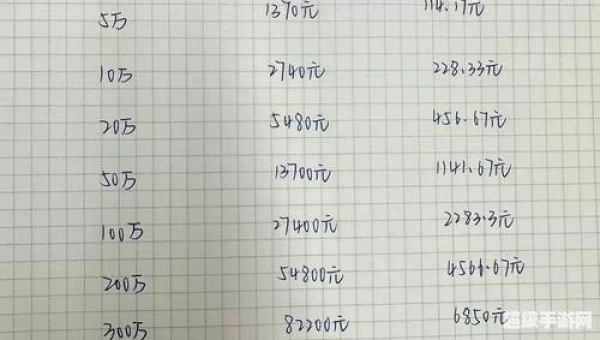 5万 1370元 114.17元
10万 2740元 228.33元
20万 5480元 456.67元
50万 13700元 1141.67元
100万 27400元 2283.3元
200万 54800元 4566.67元
300万 82200元 6850元
超级手游网